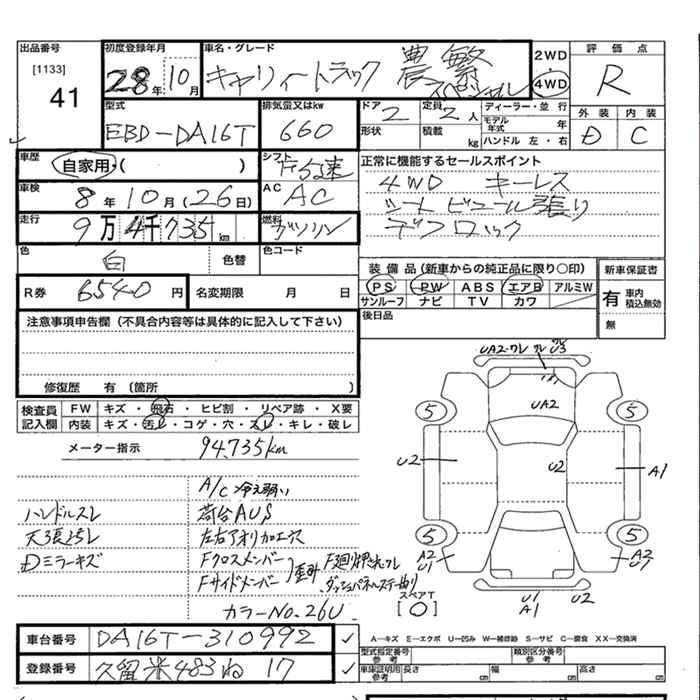 出品番号
[1133]
41
初度登録年月
28年10月
車名・グレード
キャリィートラック 農繁スペシャル
2WD
4WD
評価点
R
型式
EBD-DA16T
排気量又はkw
660
ドア
2
形状
定員
2人
積載
kg
ディーラー・並行
モデル年式
年
ハンドル 左・右
外装
D
内装
C
車歴
自家用・( )
シフト
F5速
正常に機能するセールスポイント
4WD キーレス
シートビニール張り
デフロック
車検
8年10月(26日)
AC
AC
走行
9万4千735km
燃料
ガソリン
色
白
色替
色コード
R券
6540円
名変期限 月 日
装備品(新車からの純正品に限り〇印)
PS PW ABS エアB アルミW
サンルーフ ナビ TV カワ
後日品
新車保証書
有 車内積込無効
無
注意事項申告欄(不具合内容等は具体的に記入して下さい)
修復歴 有(箇所 )
検査員記入欄
FW キズ・飛石・ヒビ割・リペア跡・X要
内装 キズ・汚レ・コゲ・穴・スレ・キレ・破レ
メーター指示
94,735km
A/C冷え弱い
ハンドルスレ
荷台AUS
天張汚レ
左右アオリカエース
Dミラーキズ
Fクロスメンバー
Fサイドメンバー
カラーNo.26U
UA2 ワレ ワレ U3
UA2
5
5
U2
U2
A1
5
5
A2
U1
A2
U2
U1
A1
U2
スペアT
[0]
車台番号
DA16T-310992
登録番号
久留米483ね17
A―キズ E―エクボ U―凹み W―補修跡 S―サビ C―腐食 XX―交換済
型式指定番号
参考
類別区分番号
参考
車庫証明用
参考
長さ cm
幅 cm
高さ cm